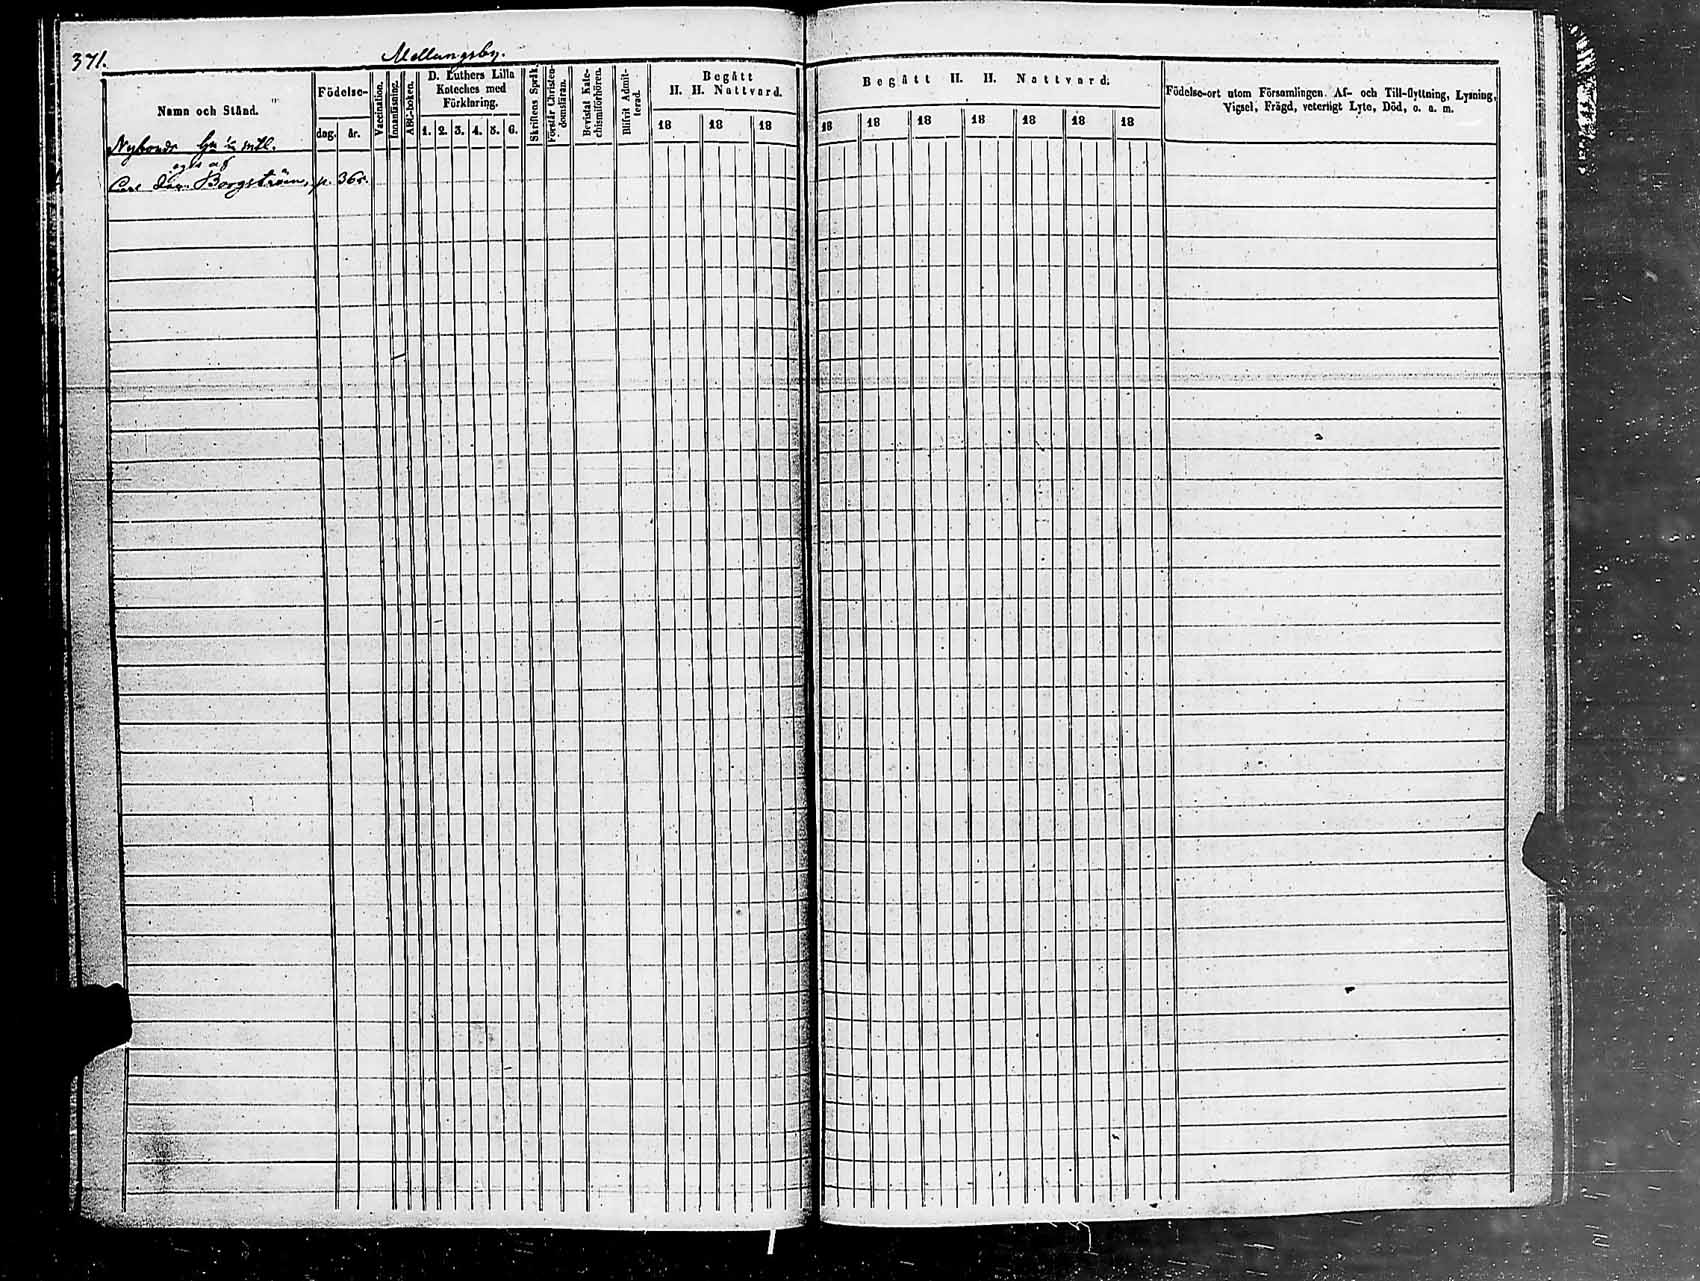 371.
Mellungsby.
Namn och Stånd.
Födelse-
dag.
år.
Vaccination.
Innanläsning.
ABC-boken.
D. Luthers Lilla
Kateches med
Förklaring.
1. 2. 3. 4. 5. 6.
Skriftens Språk.
Förstår Christen-
domsläran.
Bevistat Kate-
chismiförhören.
Blifvit Admit-
terad.
Begått
H. H. Nattvard.
18 18 18
Begått H. H. Nattvard.
18 18 18 18 18 18 18
Födelse-ort utom Församlingen. Af- och Till-flyttning, Lysning,
Vigsel, Frägd, veterligt Lyte, Död, o. a. m.
Nybonds ½ mtl.
eges af
Carl Borgström, p. 365.